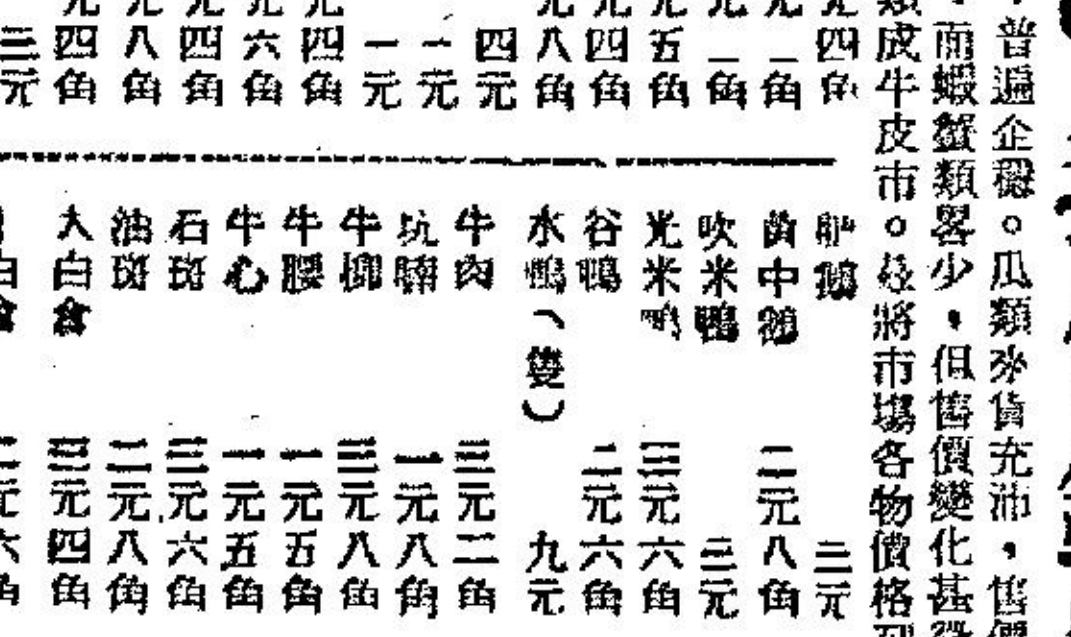 普遍企穩。瓜類來貨充沛，售價
而蝦蟹類畧少，但售價變化甚微
類成牛皮市。茲將市塲各物價格列
元四角
一角
二角
元五角
元四角
元八角
四元
一元
一元
元四角
元六角
元四角
元八角
元四角
三元
肥鵝 三元
中鵝 二元八角
吹米鴨 三元
光米鴨 三元六角
谷鴨 二元六角
水鴨（隻） 九元
牛肉 三元二角
坑腩 一元八角
牛柳 三元八角
牛腰 一元五角
牛心 一元五角
石斑 三元六角
油斑 二元八角
大白倉 三元四角
白倉 二元六角